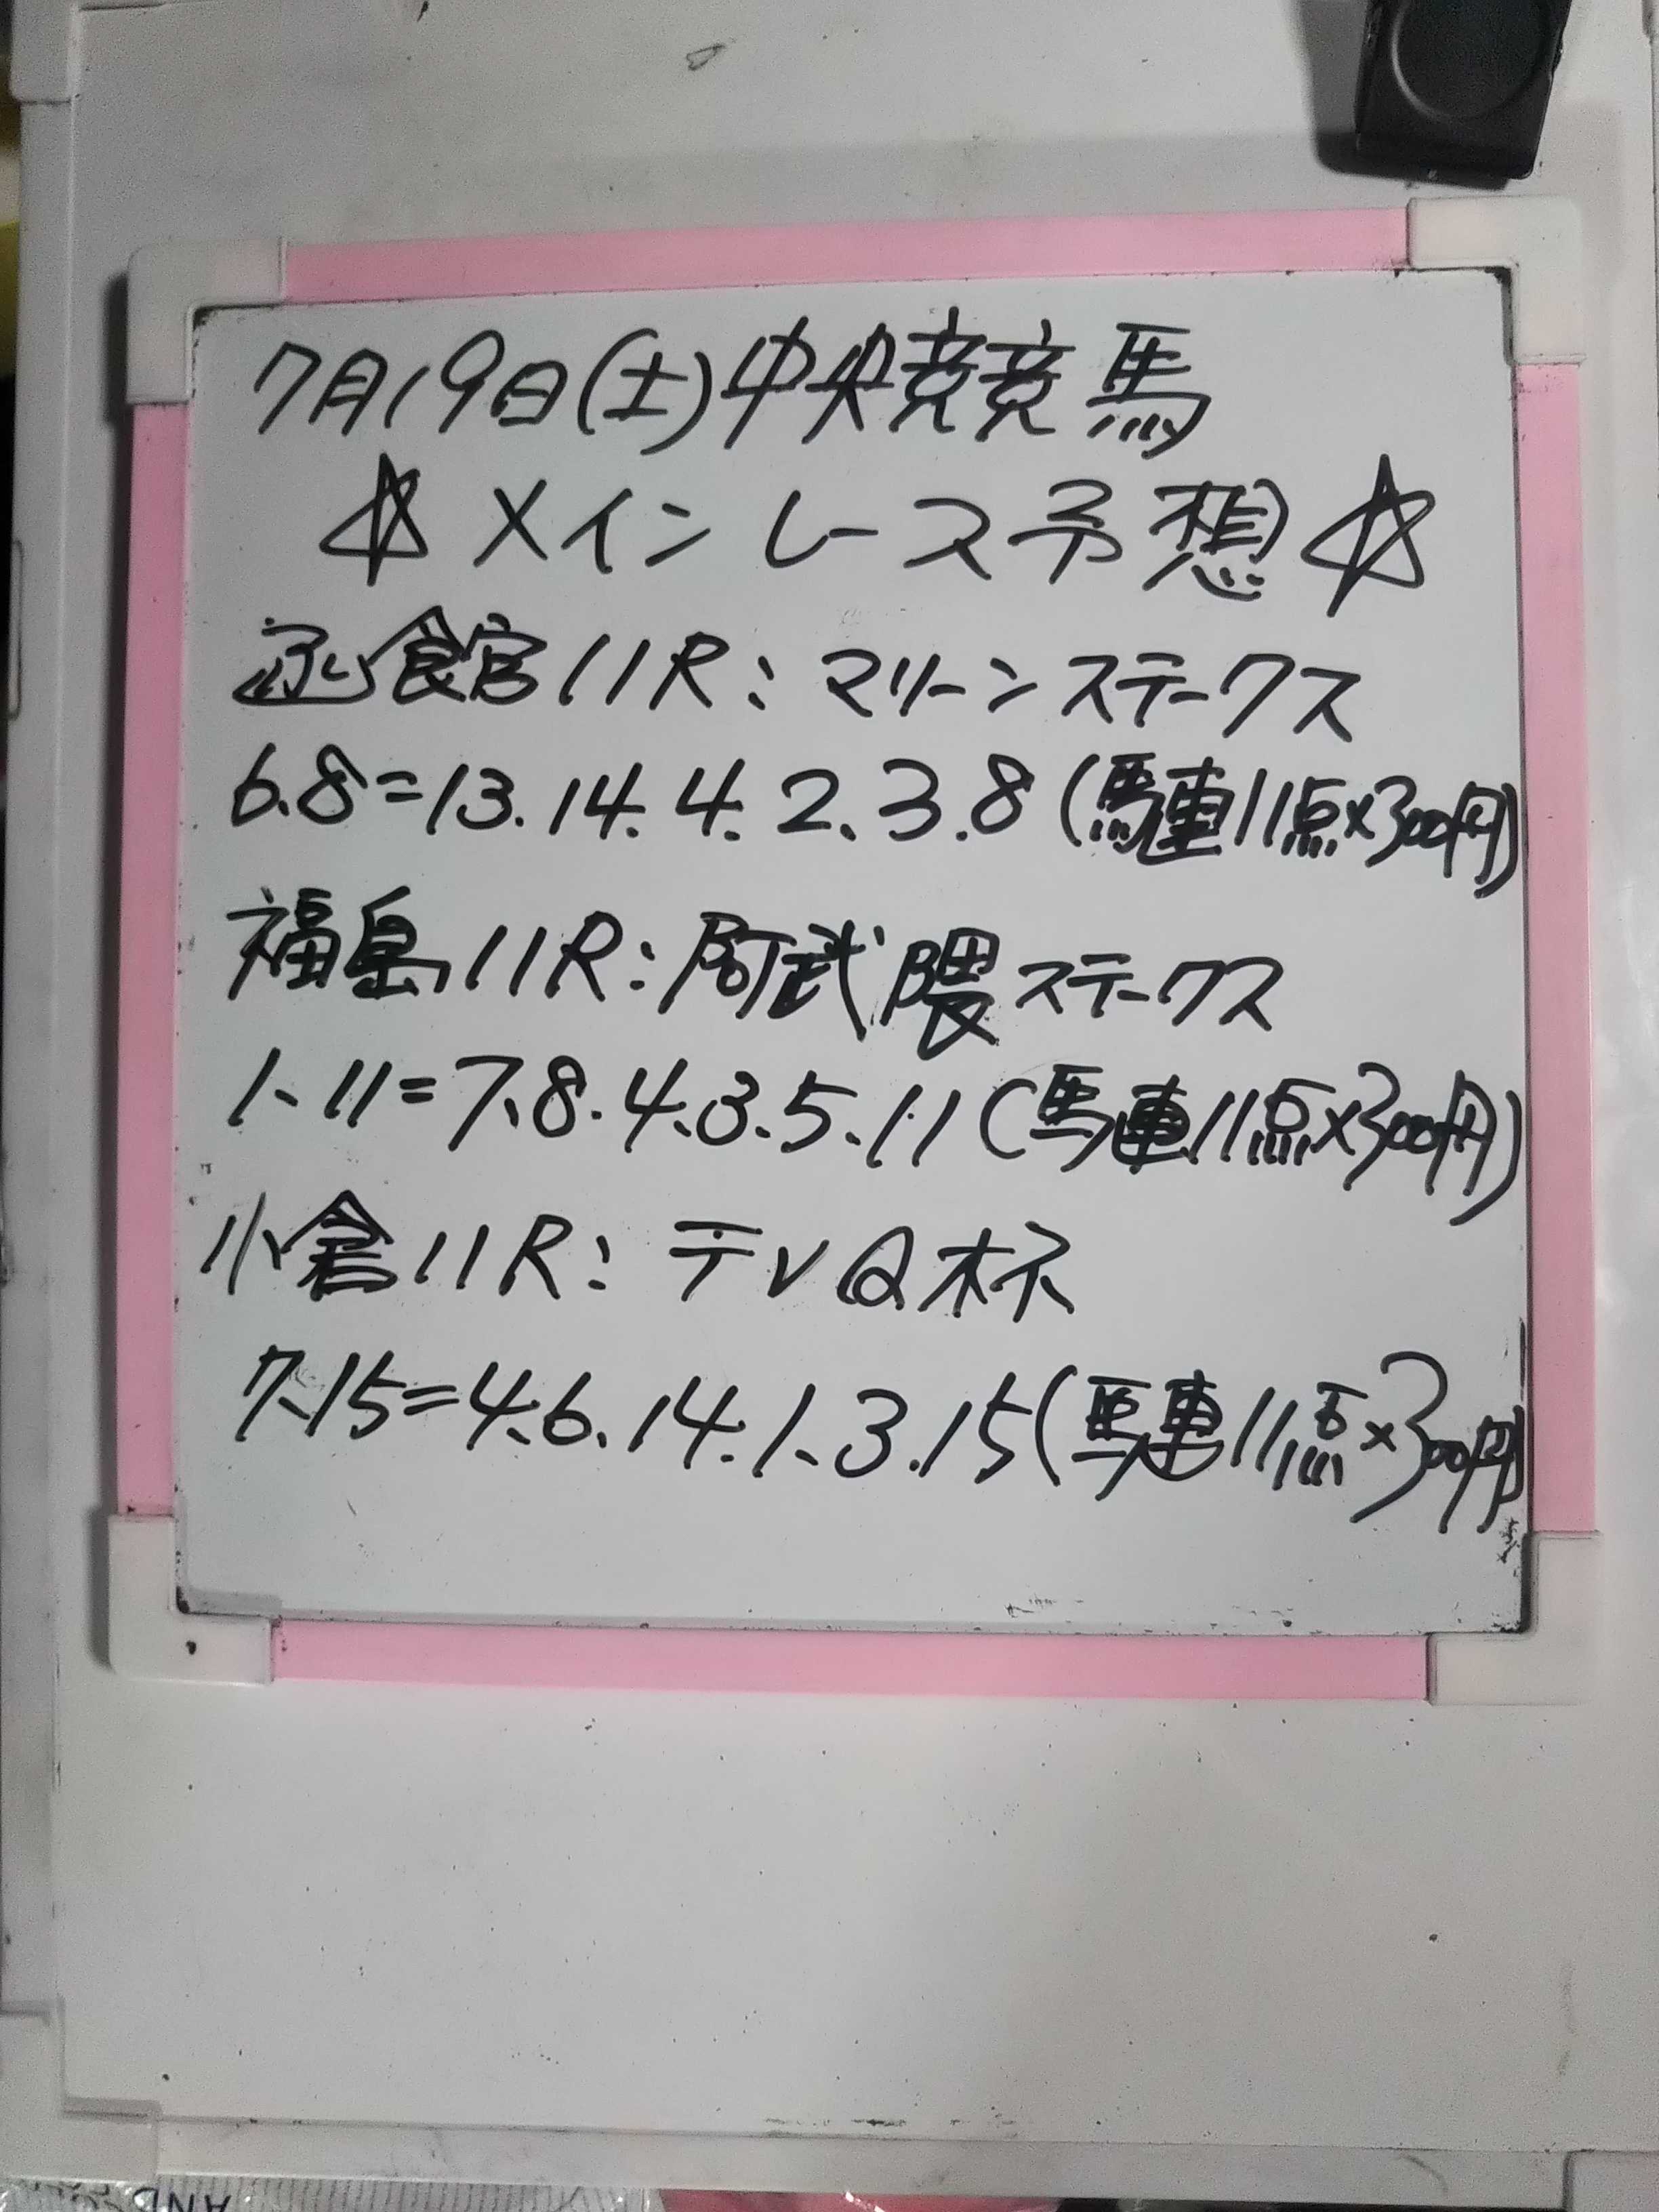 7月19日(土)中央競馬
☆メインレース予想☆
函館11R:マリーンステークス
6.8=13.14.4.2.3.8(馬連11点×300円)
福島11R:阿武隈ステークス
1.11=7.8.4.3.5.11(馬連11点×300円)
小倉11R:テレQ杯
7.15=4.6.14.1.3.15(馬連11点×300円)